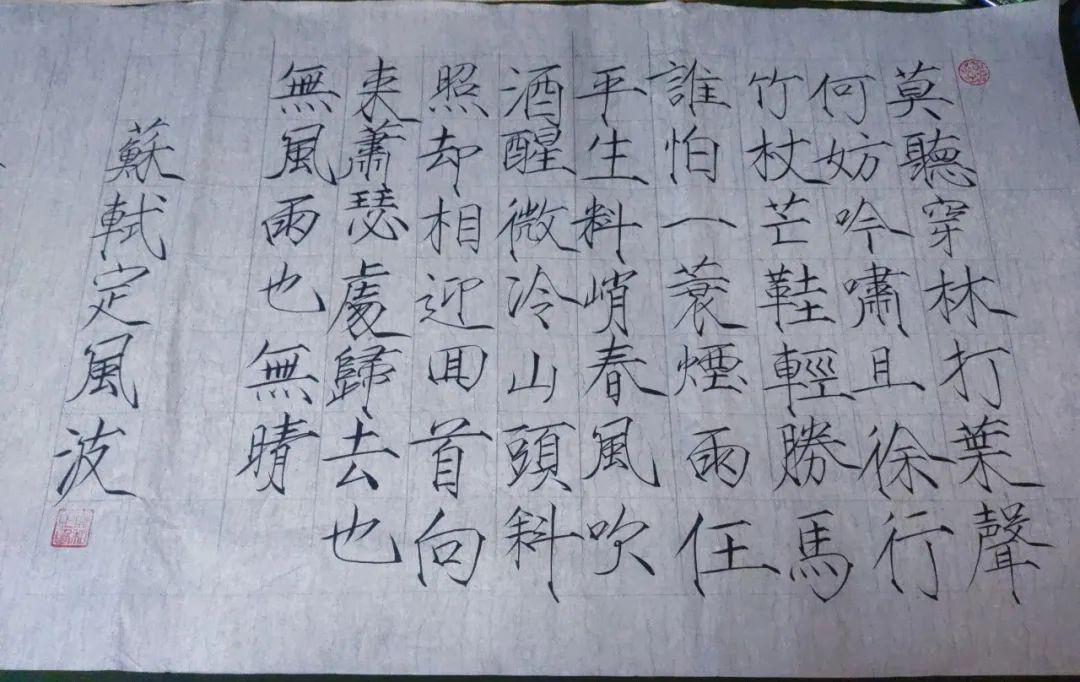 莫聽穿林打葉聲
何妨吟嘯且徐行
竹杖芒鞋輕勝馬
誰怕一蓑煙雨任
平生料峭春風吹
酒醒微冷山頭料
照却相迎囬首向
来蕭瑟處歸去也
無風雨也無晴
蘇軾定風波